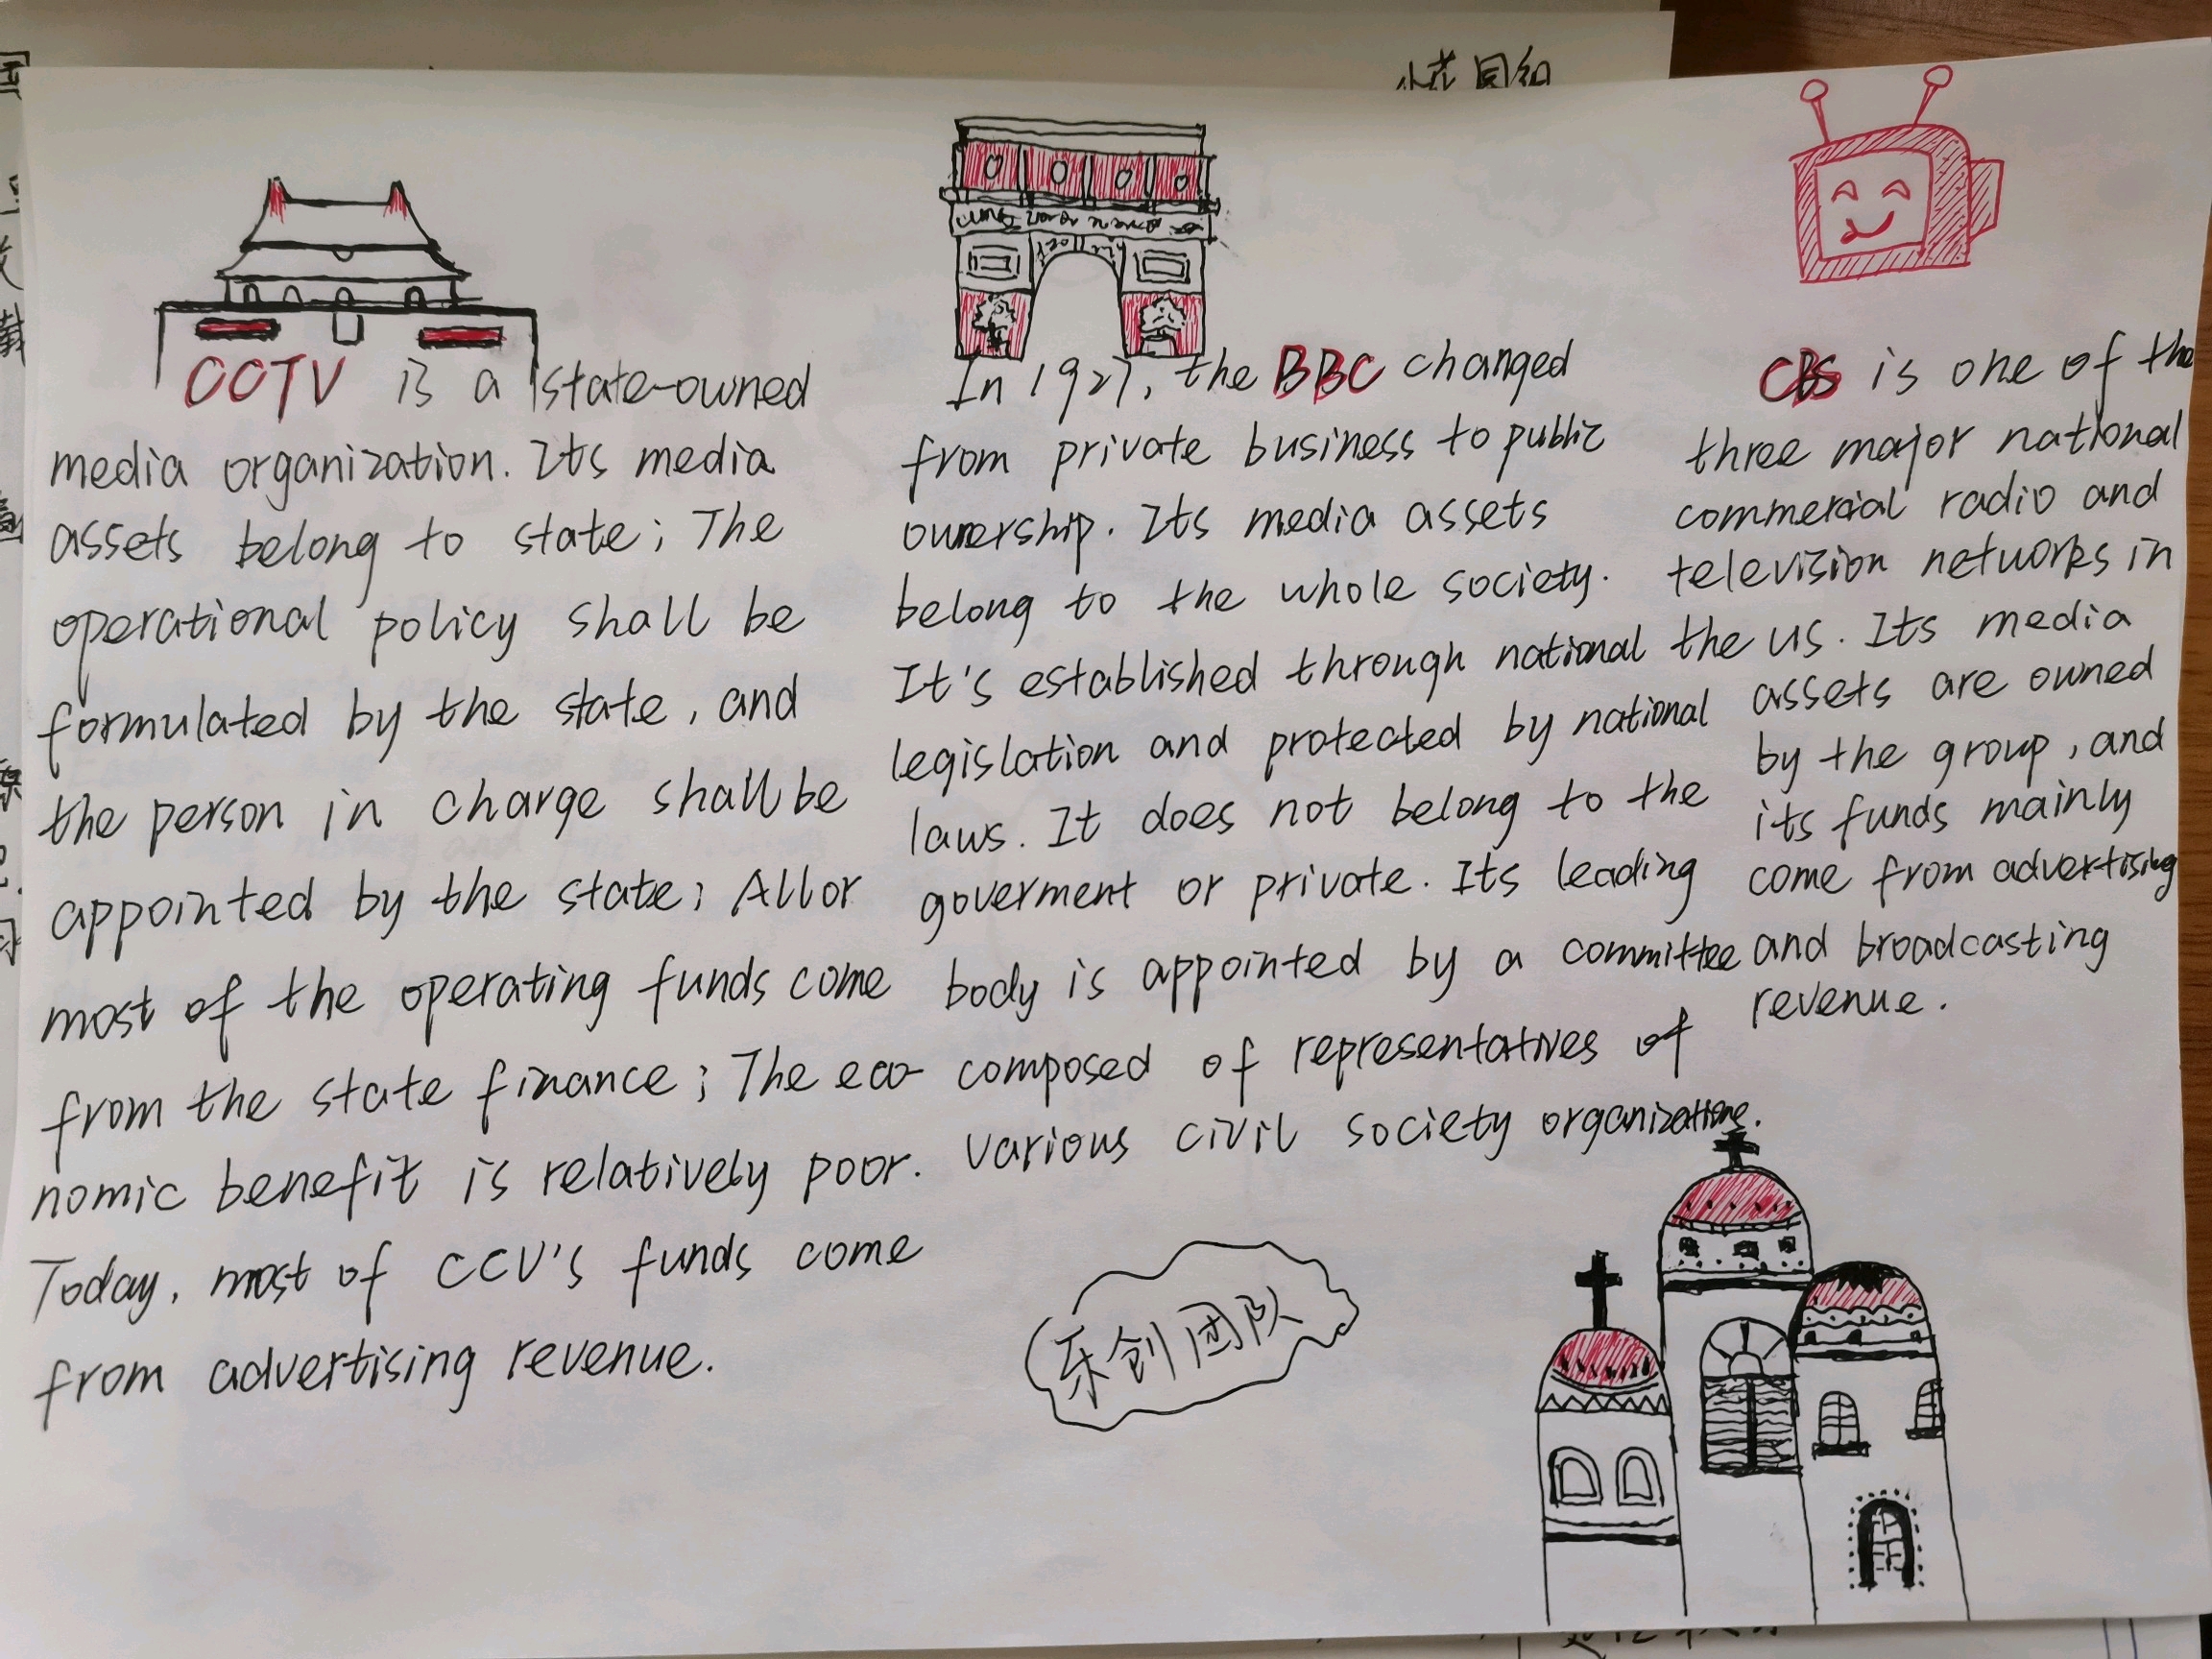 小花 同幻
CCTV is a state-owned
media organization. Its media
assets belong to state; The
operational policy shall be
formulated by the state, and
the person in charge shall be
appointed by the state; All or
most of the operating funds come
from the state finance; The eco-
nomic benefit is relatively poor.
Today, most of CCV's funds come
from advertising revenue.
In 1927, the BBC changed
from private business to public
ownership. Its media assets
belong to the whole society.
It's established through national
legislation and protected by national
laws. It does not belong to the
goverment or private. Its leading
body is appointed by a committee
composed of representatives of
various civil society organizations.
乐创团队
CBS is one of the
three major national
commercial radio and
television networks in
the US. Its media
assets are owned
by the group, and
its funds mainly
come from advertising
and broadcasting
revenue.